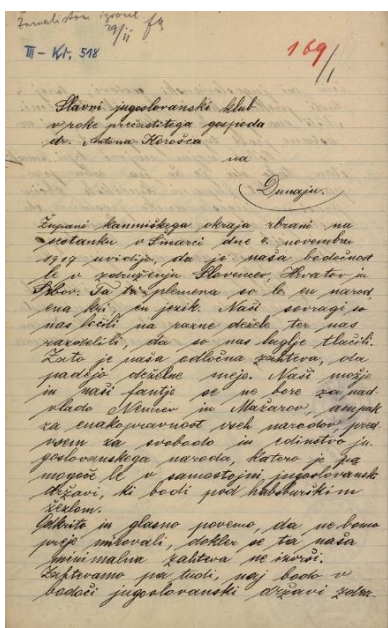 Žurnalistom izročil
29/II
III - Kt. 518
169/1
Slavni jugoslovanski klub
v roke prečastitega gospoda
dr. Antona Korošca
na
Dunaju.
Župani kamniškega okraja zbrani na
sestanku v Šmarci dne 2. novembra
1917 uvidijo, da je naša bodočnost
le v združenju Slovencev, Hrvatov in
Srbov. Ta tri plemena so le en narod,
ena kri, en jezik. Naši sovragi so
nas ločili na razne dežele ter nas
razdelili, da so nas laglje tlačili.
Zato je naša odločna zahteva, da
padejo deželne meje. Naši možje
in naši fantje se ne bore za nad-
vlado Nemcev in Mažarov, ampak
za enakopravnost vseh narodov pred-
vsem za svobodo in edinstvo ju-
goslovanskega naroda, katero je pa
mogoče le v samostojni jugoslovanski
državi, ki bodi pod habsburškim
žezlom.
Odkrito in glasno povemo, da ne bomo
preje mirovali, dokler se ta naša
minimalna zahteva ne izvrši.
Zahtevamo pa tudi, naj bodo v
bodoči jugoslovanski državi zdru-